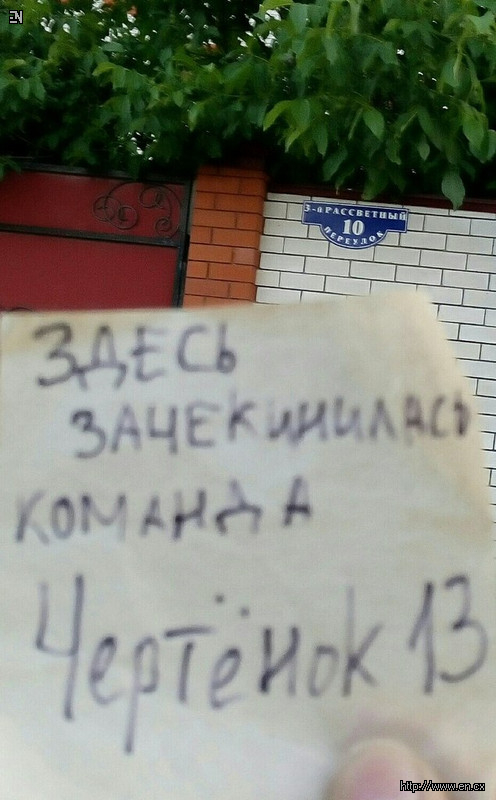 EN
3-й РАССВЕТНЫЙ
10
ПЕРЕУЛОК
ЗДЕСЬ
ЗАЧЕКИНИЛАСЬ
КОМАНДА
Чертёнок 13
http://www.en.cx